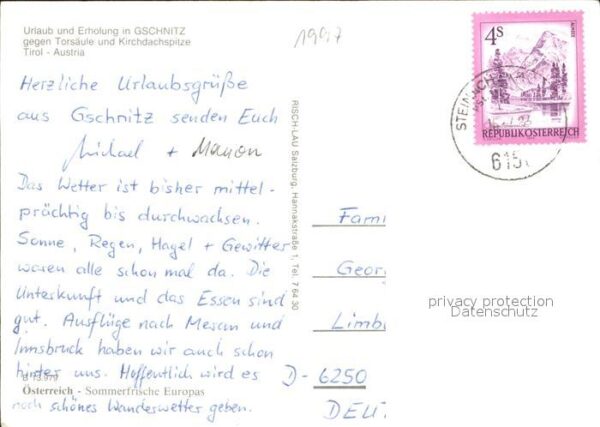 Urlaub und Erholung in GSCHNITZ
gegen Torsäule und Kirchdachspitze
Tirol - Austria
1997
Herzliche Urlaubsgrüße
aus Gschnitz senden Euch
Michael + Manon
Das Wetter ist bisher mittel-
prächtig bis durchwachsen.
Sonne, Regen, Hagel + Gewitter
waren alle schon mal da. Die
Unterkunft und das Essen sind
gut. Ausflüge nach Meran und
Innsbruck haben wir auch schon
hinter uns. Hoffentlich wird es
noch schönes Wanderwetter geben.
Österreich - Sommerfrische Europas
RISCH-LAU Salzburg, Hannakstraße 1, Tel. 7 64 30
4S
ALMSEE
REPUBLIK ÖSTERREICH
STEINACH
615
Fami
Geor
Limb
D-6250
DEU
privacy protection
Datenschutz